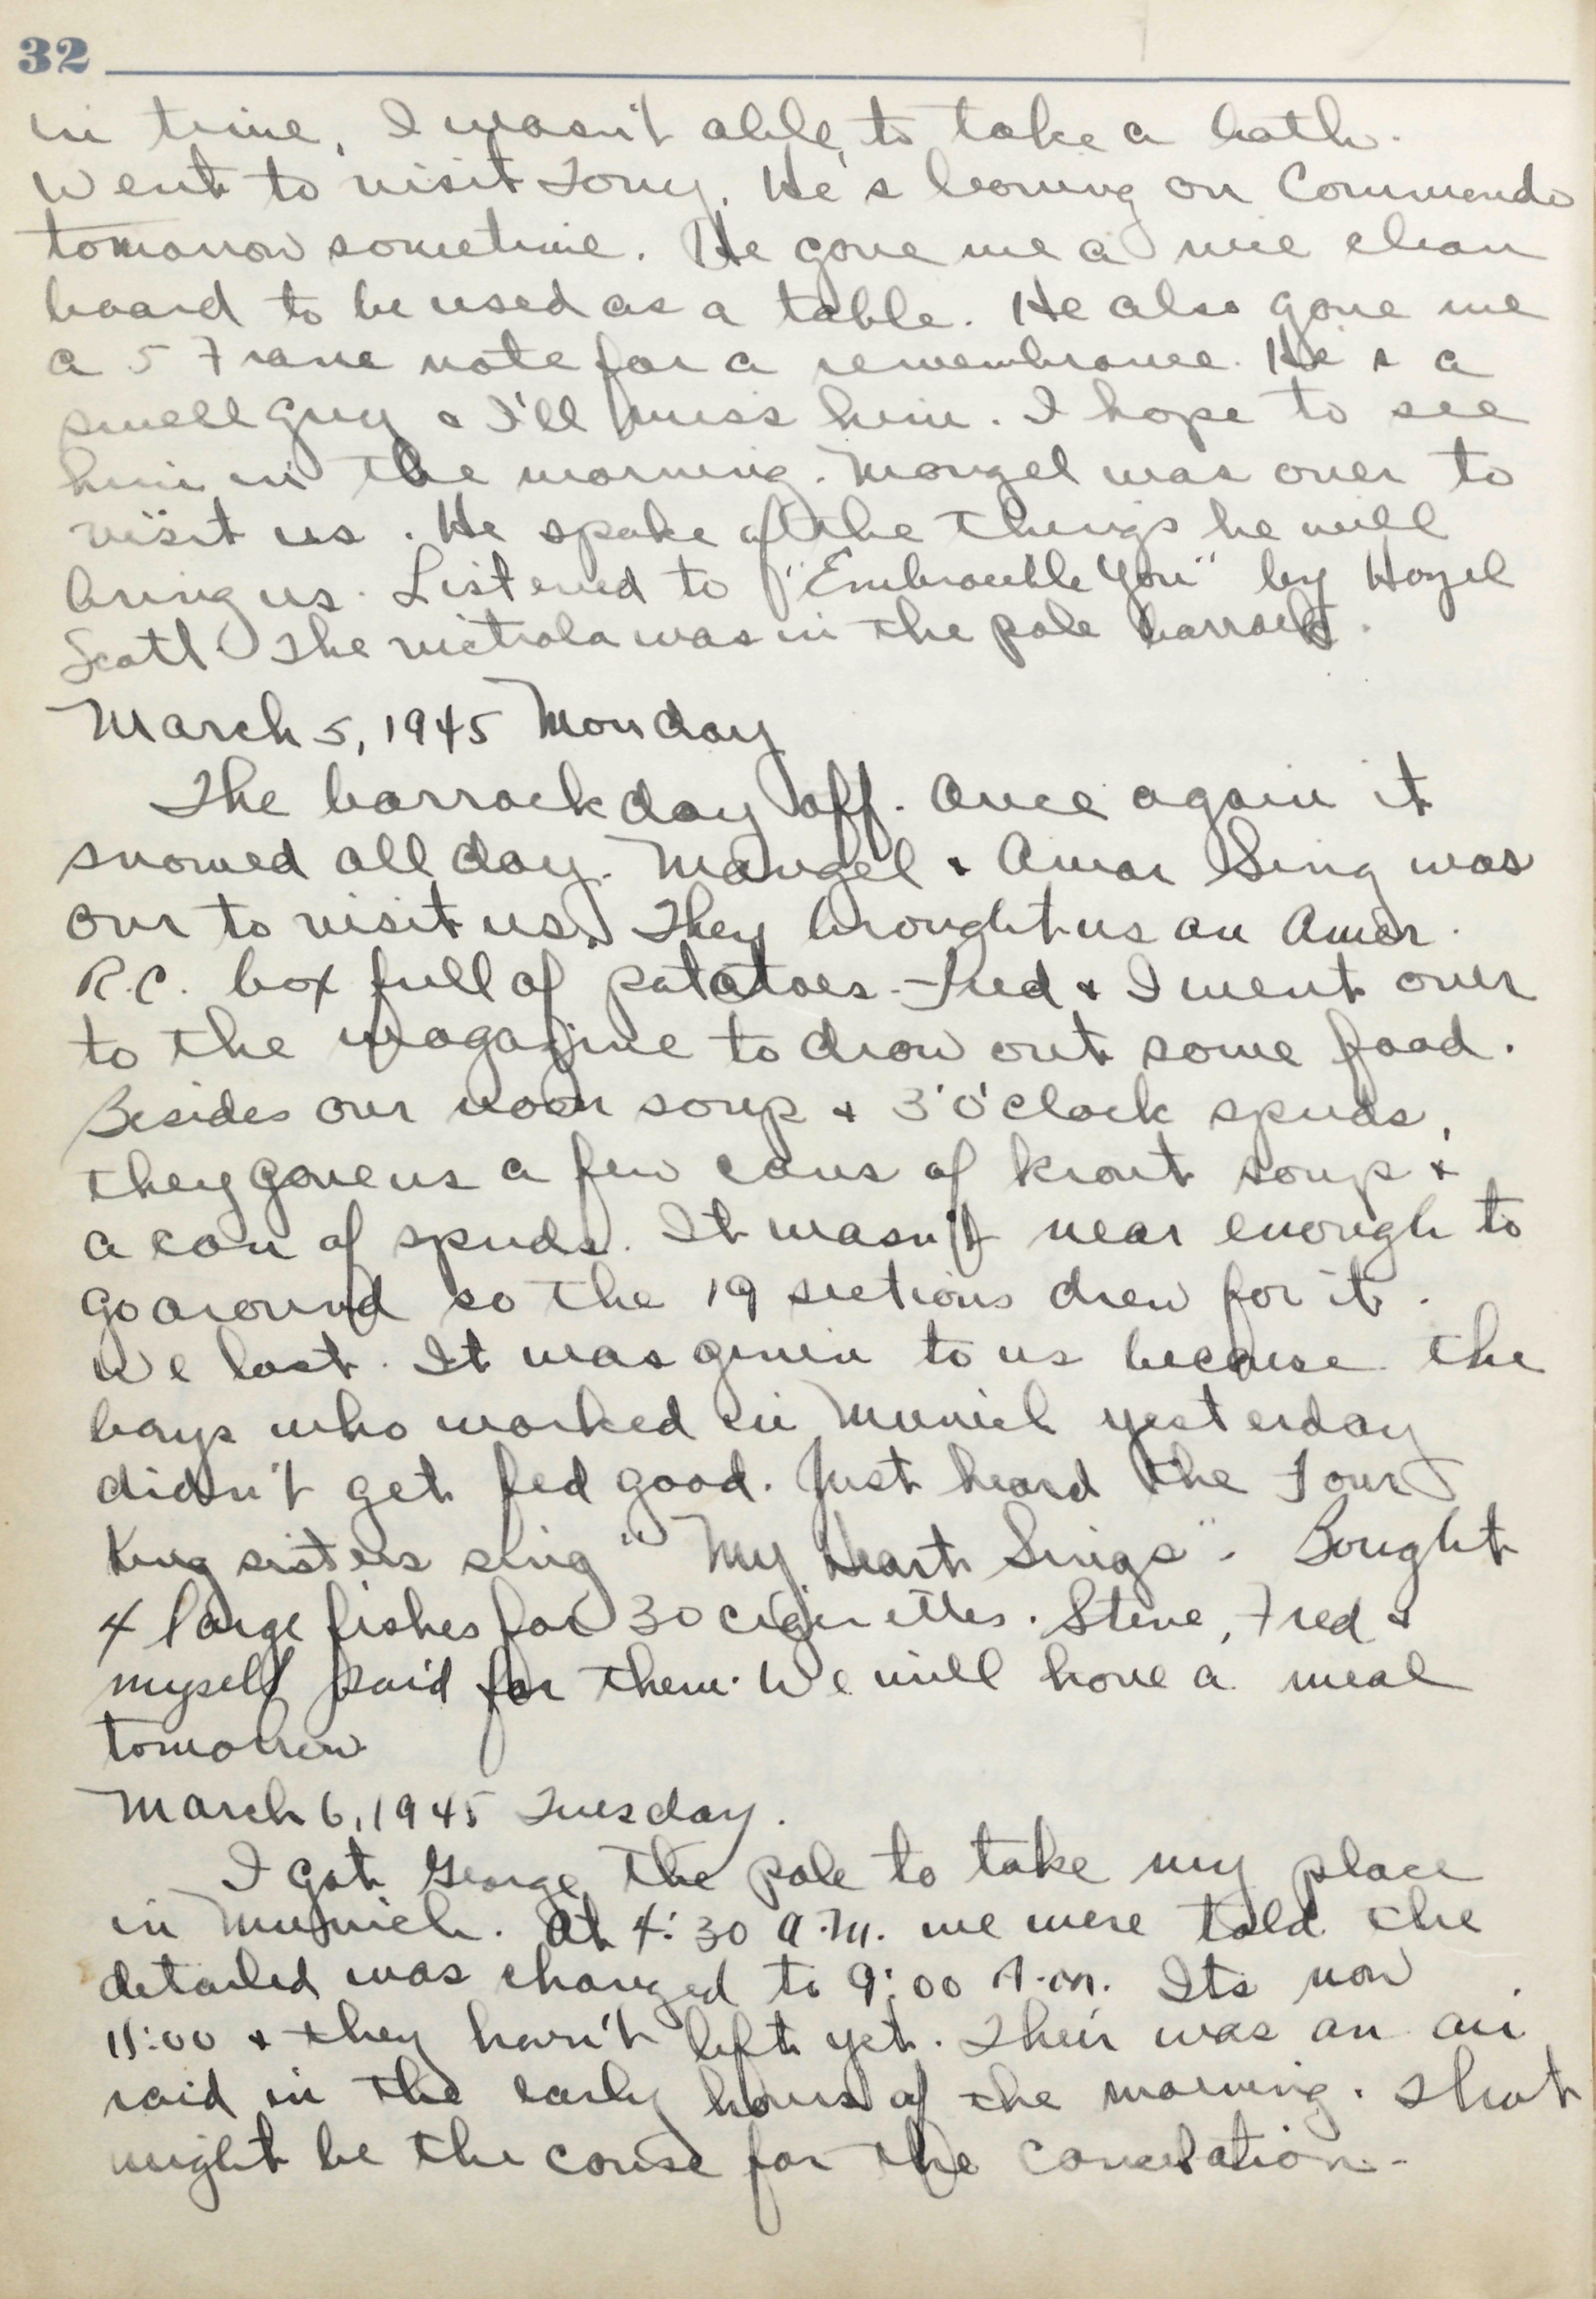 32
in time, I wasn't able to take a bath.
Went to visit Tony. He's leaving on Commando
tomorrow sometime. He gave me a nice clean
board to be used as a table. He also gave me
a 5 Franc note for a remembrance. He's a
swell guy & I'll miss him. I hope to see
him in the morning. Mangel was over to
visit us. He spoke of the things he will
bring us. Listened to "Embraceble You" by Hazel
Scott. The victrola was in the pole barrack.
March 5, 1945 Monday
The barrack day off. Once again it
snowed all day. Mangel & Amar Sing was
over to visit us. They brought us an Amer.
R.C. box full of patatoes. Fred & I went over
to the magazine to draw out some food.
Besides our noon soup & 3'O'clock spuds,
they gave us a few cans of krout soup &
a can of spuds. It wasn't near enough to
go around so the 19 sections drew for it.
We lost. It was given to us because the
boys who worked in Munich yesterday
didn't get fed good. Just heard the Four
King sisters sing "My Heart Sings". Bought
4 large fishes for 30 cigarettes. Steve, Fred &
myself paid for them. We will have a meal
tomorrow
March 6, 1945 Tuesday.
I got George the pole to take my place
in Munich. At 4:30 A.M. we were told the
detailed was changed to 9:00 A.M. Its now
11:00 & they havn't left yet. Their was an air
raid in the early hours of the morning. That
might be the couse for the